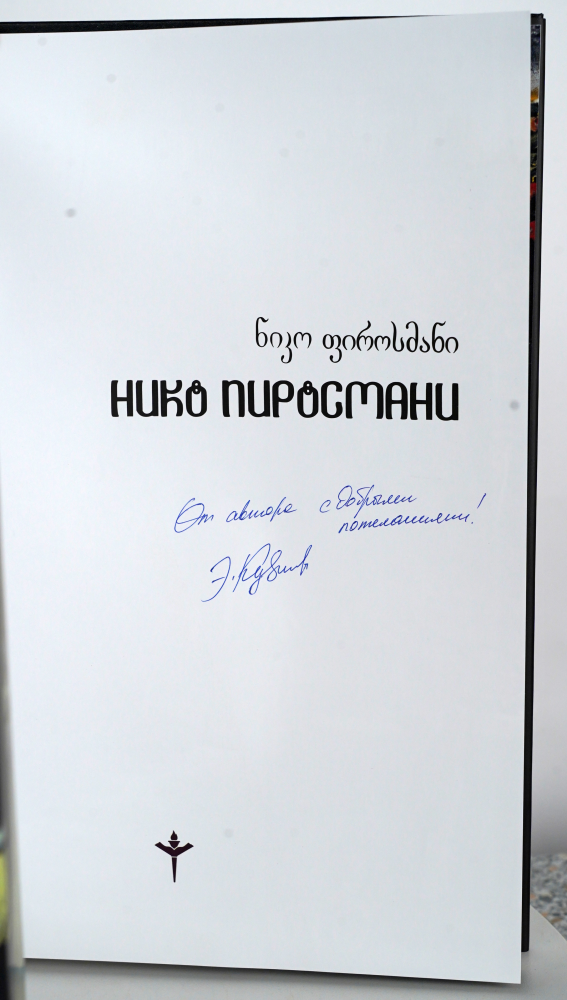 ნიკო ფიროსმანი
НИКО ПИРОСМАНИ
От автора с добрыми
пожеланиями!
Э. Кузнец